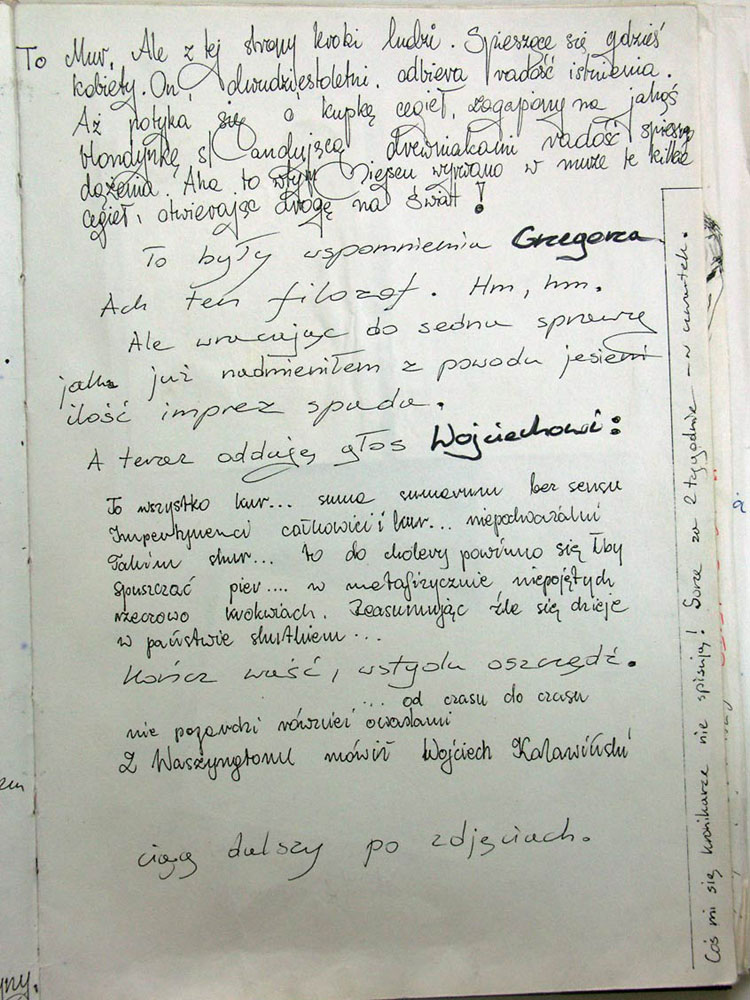 To Mur. Ale z tej strony kroki ludzi. Spieszące się gdzieś
kobiety. On dwudziestoletni. odbiera radość istnienia.
Aż potyka się o kupkę cegieł, zagapiony na jakąś
blondynkę s! andującą drewniakami radość spiesz
dążenia. Aha to w tym miejscu wyrwano w murze te kilka
cegieł, otwierając drogę na świat!
To były wspomnienia Grzegorza
Ach ten filozof. Hm, hm.
Ale wracając do sedna sprawy
jak już nadmieniłem z powodu jesieni
ilość imprez spada.
A teraz oddaję głos Wojciechowi:
To wszystko kur... suma sumarum bez sensu
Impertynenci całkowici i kur... niepodważalni
Takim skur... to do cholery powinno się łby
spuszczać pier.... w metafizycznie niepojętych
rzeczowo krokwiach. Reasumując źle się dzieje
w państwie skutkiem...
Kończ waść, wstydu oszczędź.
... od czasu do czasu
nie pogardzi również owadami
Z Waszyngtonu mówił Wojciech
ciąg dalszy po zdjęciach.
Coś mi się kronikarze nie spisują! Sorze za 2 tygodnie - w czwartek.
yny.